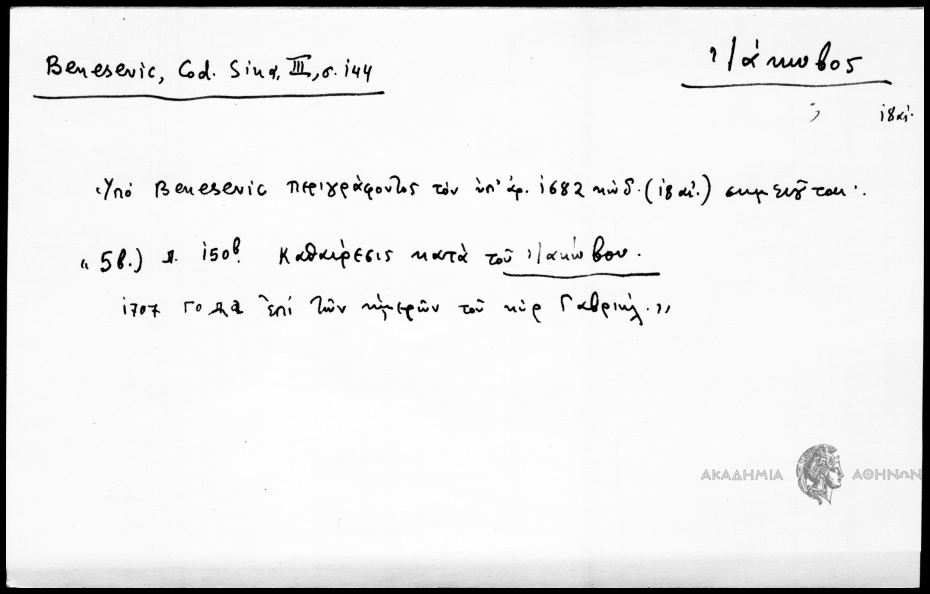 Benesevic, Cod. Sina, III, σ. 144
Ἰάκωβος
; 18 αἰ.
Ὑπό Benesevic περιγράφοντος τόν ὑπ' ἀρ. 1682 κώδ. (18 αἰ.) σημειοῦται:
"56.) л. 150β Καθαίρεσις κατά τοῦ Ἰακώβου.
1707 года ἐπί τῶν ἡμερῶν τοῦ κύρ Γαβριήλ."
ΑΚΑΔΗΜΙΑ ΑΘΗΝΩΝ